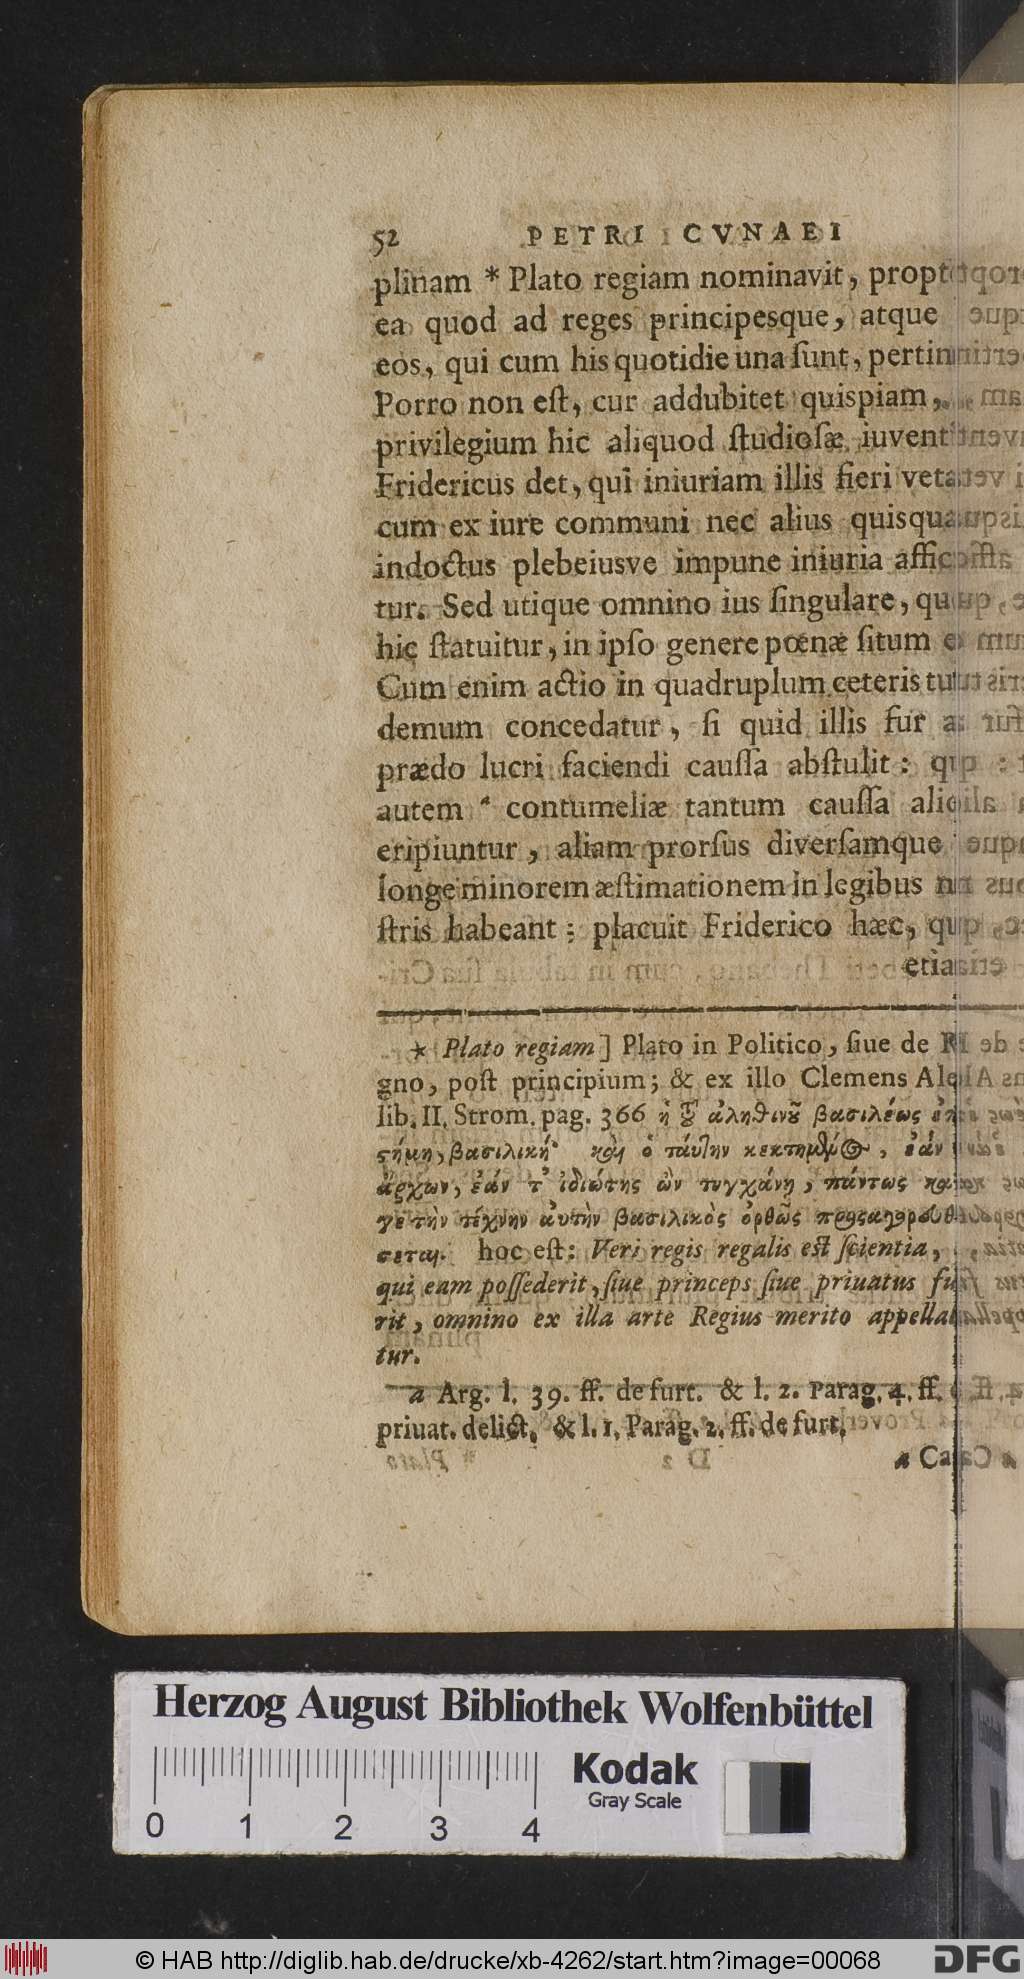 52 PETRI CVNAEI
plinam * Plato regiam nominavit, propt
ea quod ad reges principesque, atque
eos, qui cum his quotidie una ſunt, pertin
Porro non eſt, cur addubitet quispiam,
privilegium hic aliquod ſtudioſæ iuvent
Fridericus det, qui iniuriam illis fieri veta
cum ex iure communi nec alius quisqua
indoctus plebeiusve impune iniuria affic
tur. Sed utique omnino ius ſingulare, qu
hic ſtatuitur, in ipſo genere pœnæ ſitum e
Cum enim actio in quadruplum ceteris tu
demum concedatur, ſi quid illis fur a
prædo lucri faciendi cauſſa abſtulit: q
autem a contumeliæ tantum cauſſa alio
eripiuntur, aliam prorſus diverſamque
longe minorem æſtimationem in legibus n
ſtris habeant: placuit Friderico hæc, qu
etia
* Plato regiam] Plato in Politico, ſiue de R
gno, poſt principium; & ex illo Clemens Al
lib. II. Strom. pag. 366 ἡ τοῦ ἀληθινοῦ βασιλέως ἐπι
ςήμη, βασιλική· καὶ ὁ ταύτην κεκτημένος, ἐάν
ἄρχων, ἐάν τ' ἰδιώτης ὢν τυγχάνῃ, πάντως κα
γε τὴν τέχνην αὐτὴν βασιλικὸς ὀρθῶς προςαγορευθή
σεται. hoc eſt: Veri regis regalis eſt ſcientia,
qui eam poſſederit, ſiue princeps ſiue priuatus fu
rit, omnino ex illa arte Regius merito appella
tur.
a Arg. l. 39. ff. de furt. & l. 2. Parag. 4. ff.
priuat. delict. & l. 1. Parag. 2. ff. de furt.
a Ca
Herzog August Bibliothek Wolfenbüttel
0 1 2 3 4
Kodak
Gray Scale
© HAB http://diglib.hab.de/drucke/xb-4262/start.htm?image=00068
DFG